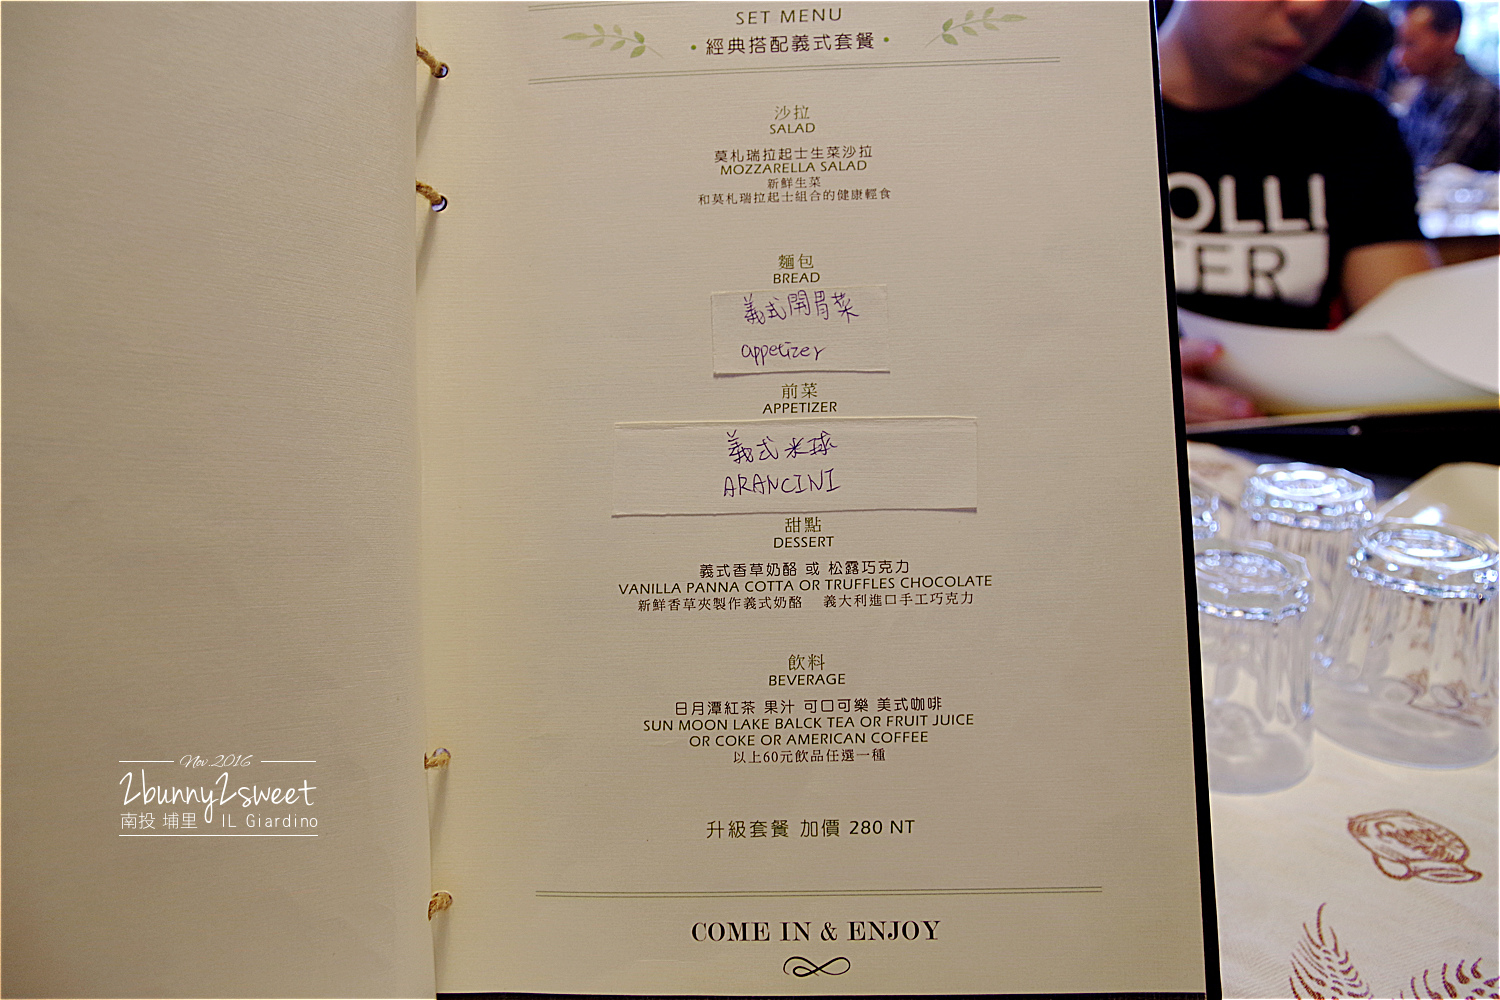 SET MENU
• 經典搭配義式套餐 •
沙拉
SALAD
莫札瑞拉起士生菜沙拉
MOZZARELLA SALAD
新鮮生菜
和莫札瑞拉起士組合的健康輕食
麵包
BREAD
義式開胃菜
appetizer
前菜
APPETIZER
義式米球
ARANCINI
甜點
DESSERT
義式香草奶酪 或 松露巧克力
VANILLA PANNA COTTA OR TRUFFLES CHOCOLATE
新鮮香草夾製作義式奶酪 義大利進口手工巧克力
飲料
BEVERAGE
日月潭紅茶 果汁 可口可樂 美式咖啡
SUN MOON LAKE BALCK TEA OR FRUIT JUICE
OR COKE OR AMERICAN COFFEE
以上60元飲品任選一種
升級套餐 加價 280 NT
COME IN & ENJOY
Nov.2016
2bunny2sweet
南投 埔里 IL Giardino
OLLI
TER